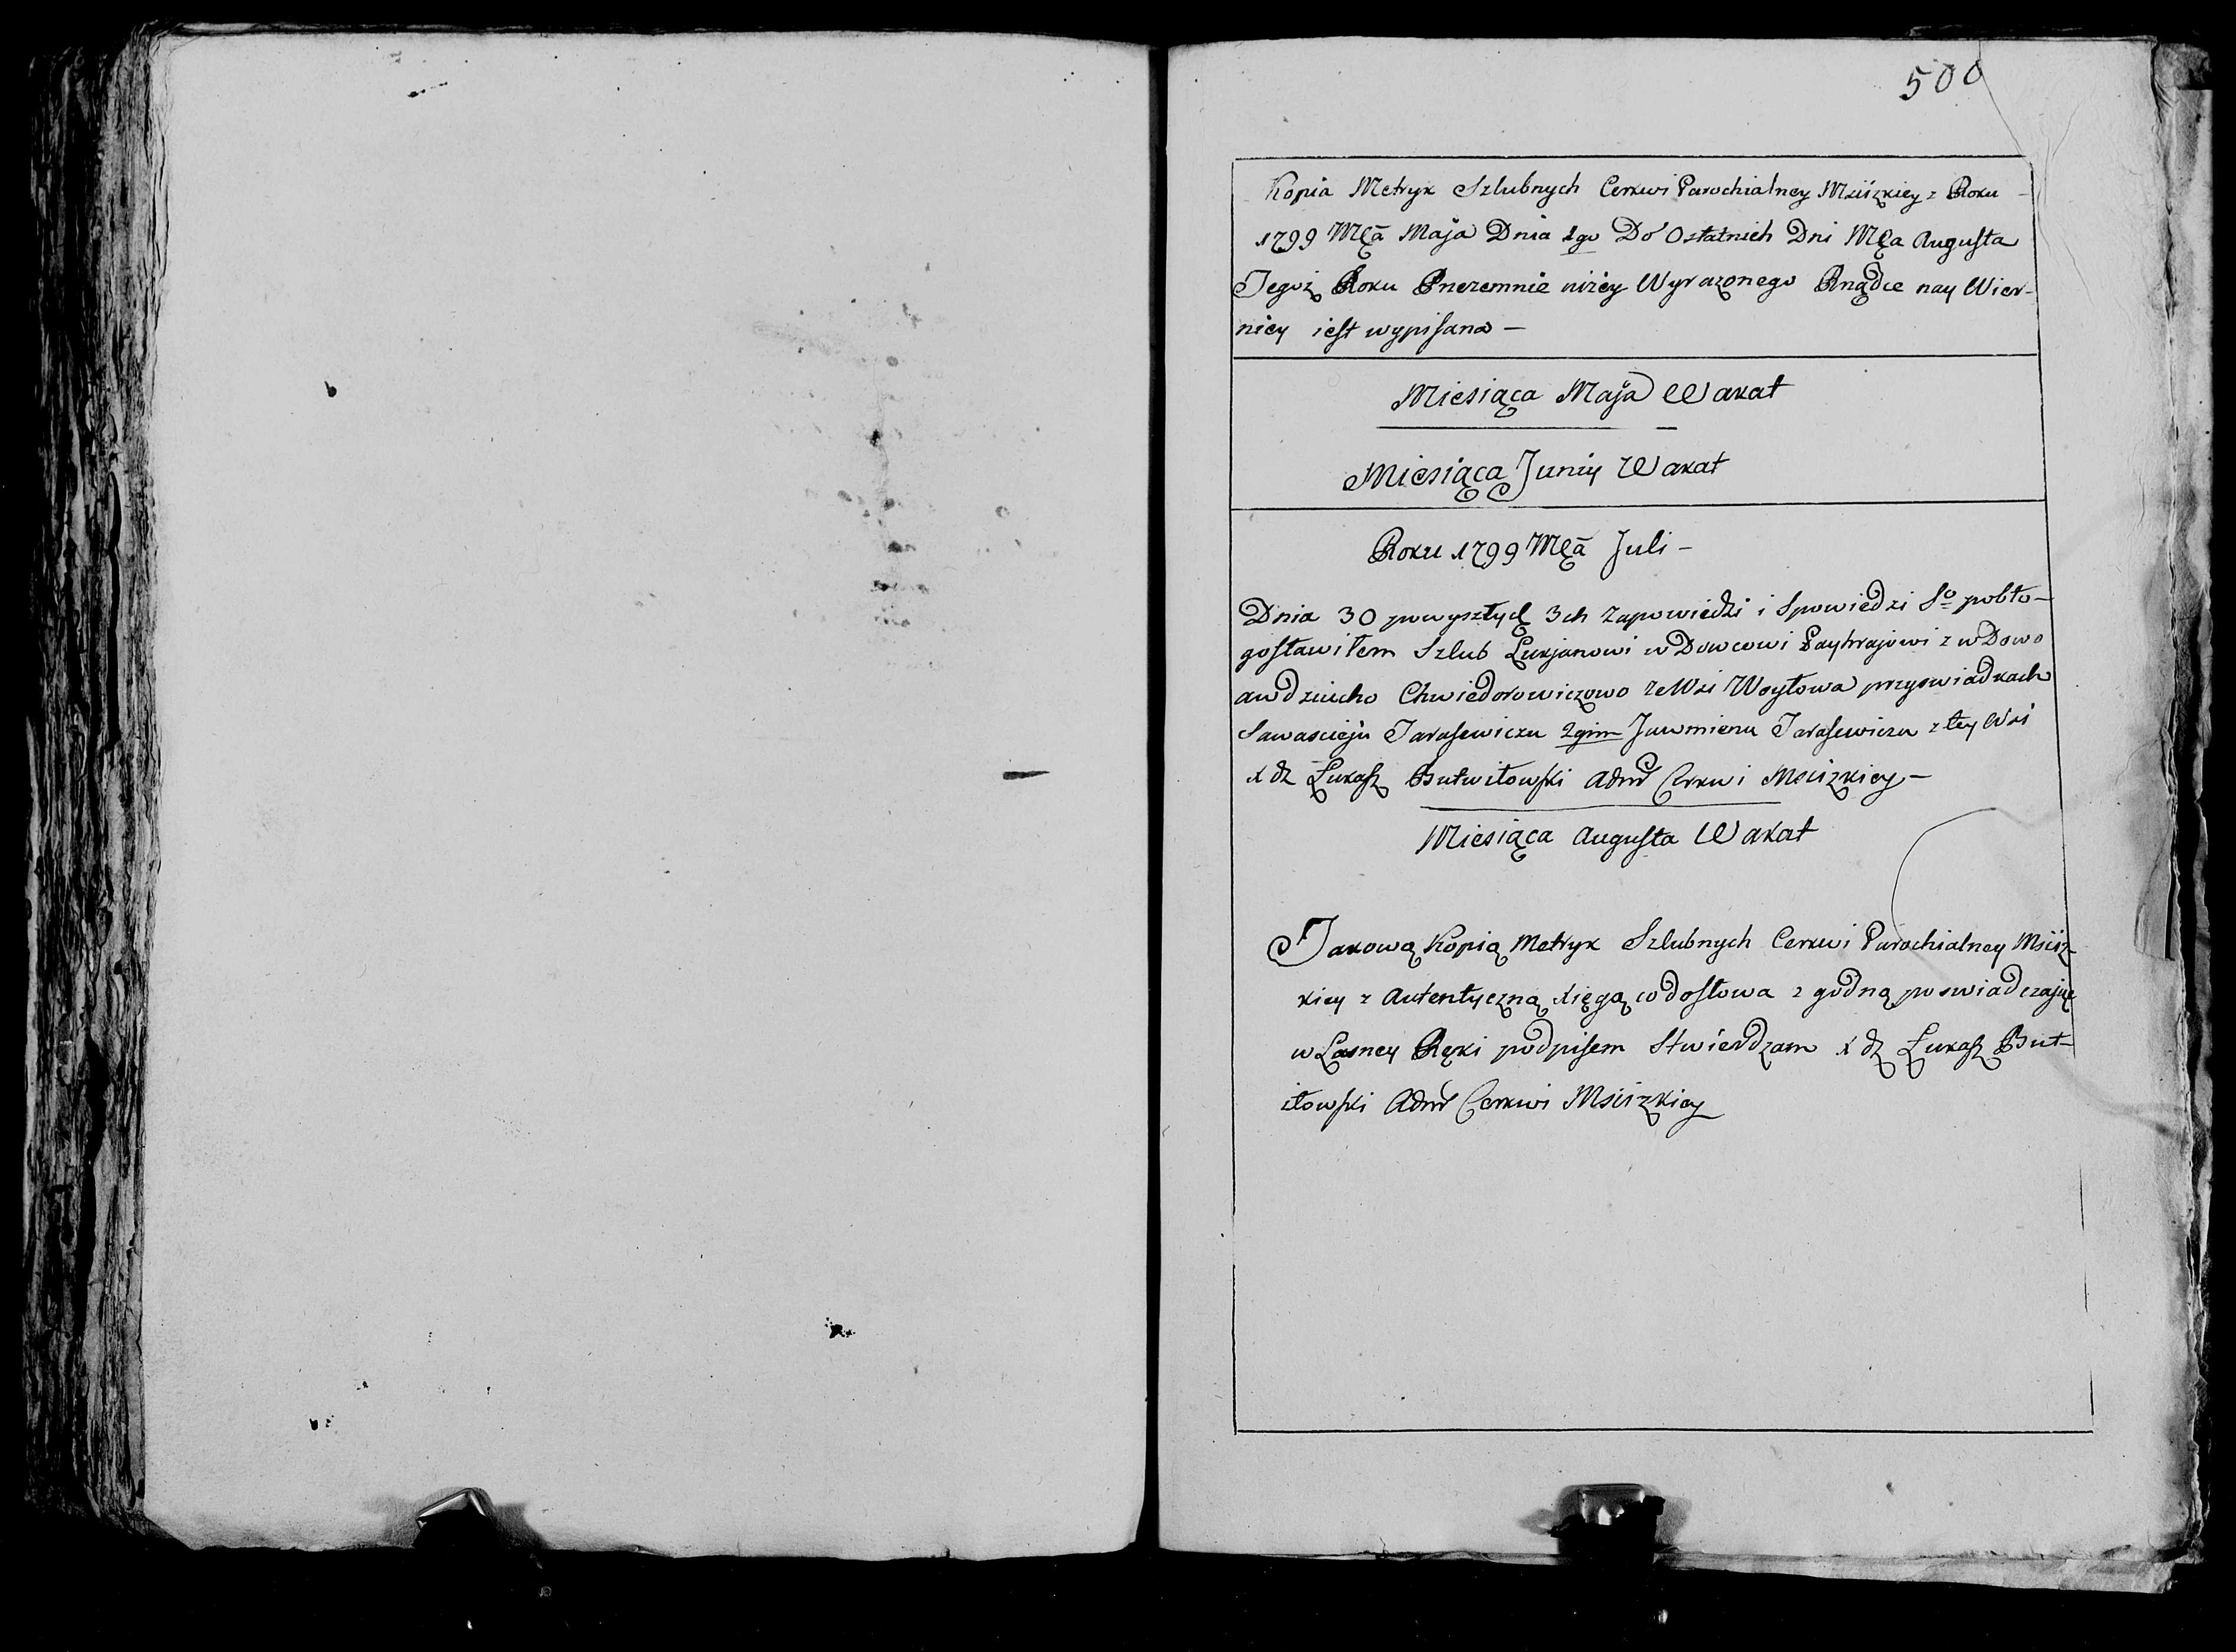 500
Kopia Metryk Szlubnych Cerkwi Parochialney Mściżkiey z Roku
1799 Mcã Maja Dnia 1go Do Ostatnich Dni Mca Augusta
Tegoż Roku Przezemnie niżey Wyrażonego Rządce nay Wier-
niey iest wypisana —
Miesiąca Maja Wakat
Miesiąca Juniy Wakat
Roku 1799 Mcã Juli —
Dnia 30 powyszłych 3ch Zapowiedzi i Spowiedzi So pobło-
gosławiłem Szlub Łukjanowi wDowcowi z wDowo
awdziucho Chwiedorowiczowo ze Wsi Woyłowa przyswiadkach
Sawascieju Tarasewiczu 2gim Jawmienu Tarasewiczu z tey Wsi
xdz Łukasz Butwiłowski Admr Cerkwi Mscizkiey —
Miesiąca Augusta Wakat
Takową Kopią Metryk Szlubnych Cerkwi Parochialney Msciż-
kiey z Autentyczną xięgą codosłowa zgodną poswiadczając
wLasney Ręki podpisem Stwierdzam xdz Łukasz But-
iłowski Admr Cerkwi Mscizkiey